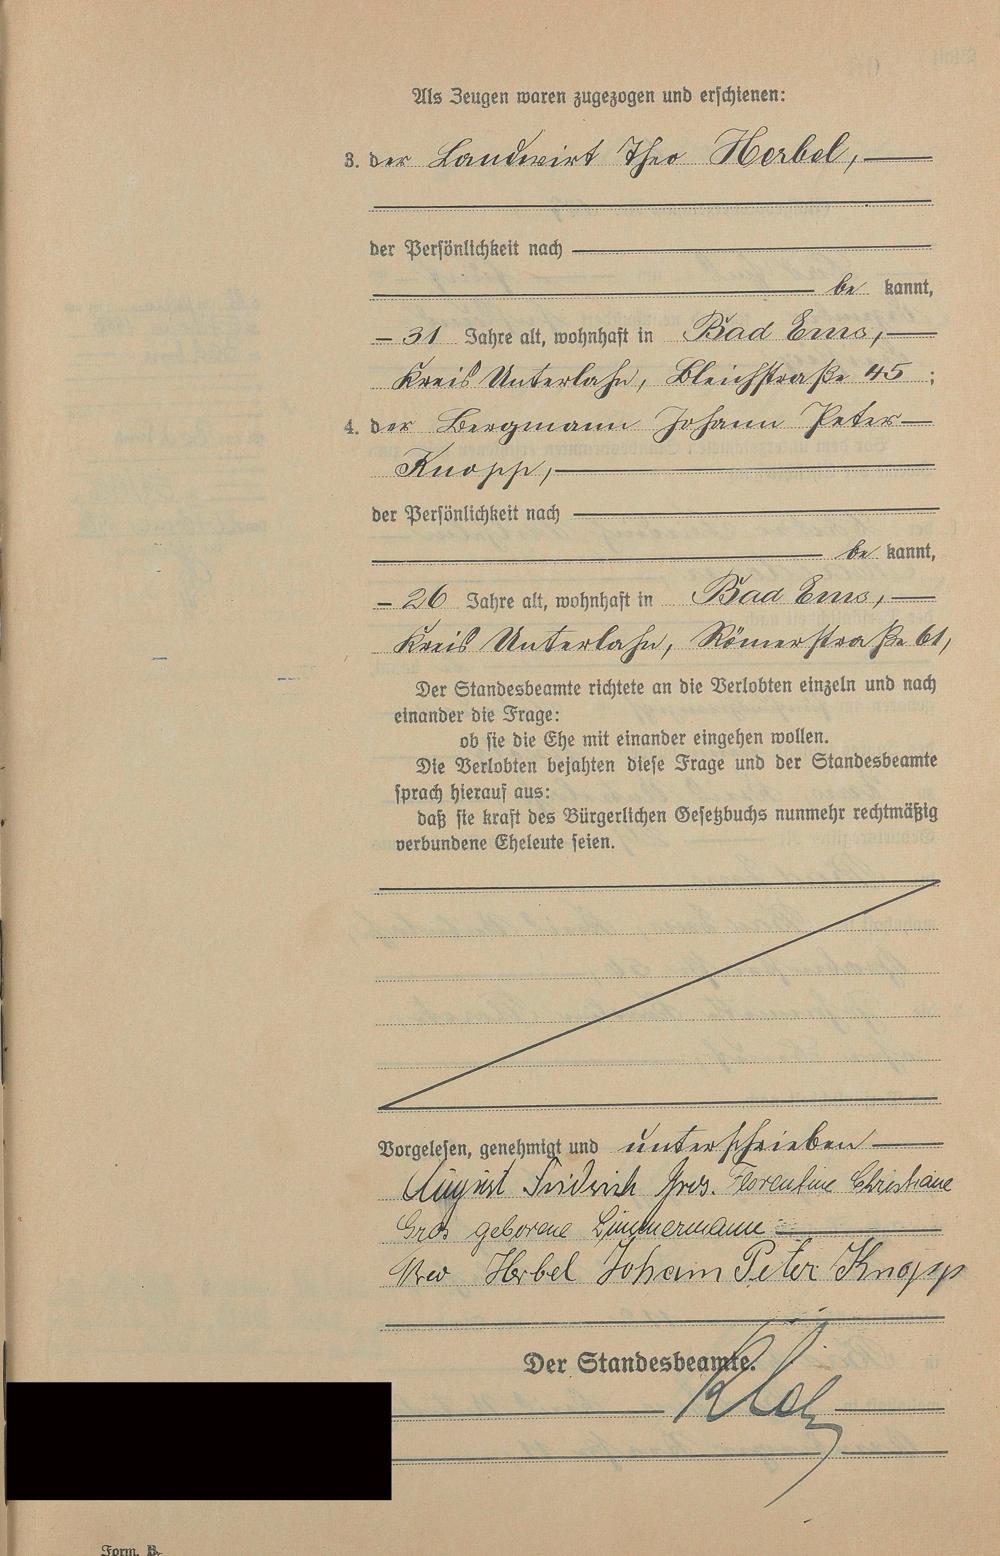 Als Zeugen waren zugezogen und erschienen:
3. der Landwirt Theo Herbel,
der Persönlichkeit nach
be kannt,
31 Jahre alt, wohnhaft in Bad Ems,
Kreis Unterlahn, Bleichstraße 45 ;
4. der Bergmann Johann Peter
Knopp,
der Persönlichkeit nach
be kannt,
26 Jahre alt, wohnhaft in Bad Ems,
Kreis Unterlahn, Römerstraße 61,
Der Standesbeamte richtete an die Verlobten einzeln und nach
einander die Frage:
ob sie die Ehe mit einander eingehen wollen.
Die Verlobten bejahten diese Frage und der Standesbeamte
sprach hierauf aus:
daß sie kraft des Bürgerlichen Gesetzbuchs nunmehr rechtmäßig
verbundene Eheleute seien.
Vorgelesen, genehmigt und unterschrieben
August Friedrich Gros. Florentine Christiane
Gros geborene Zimmermann
Herbel Johann Peter Knopp
Der Standesbeamte.
Form. B.